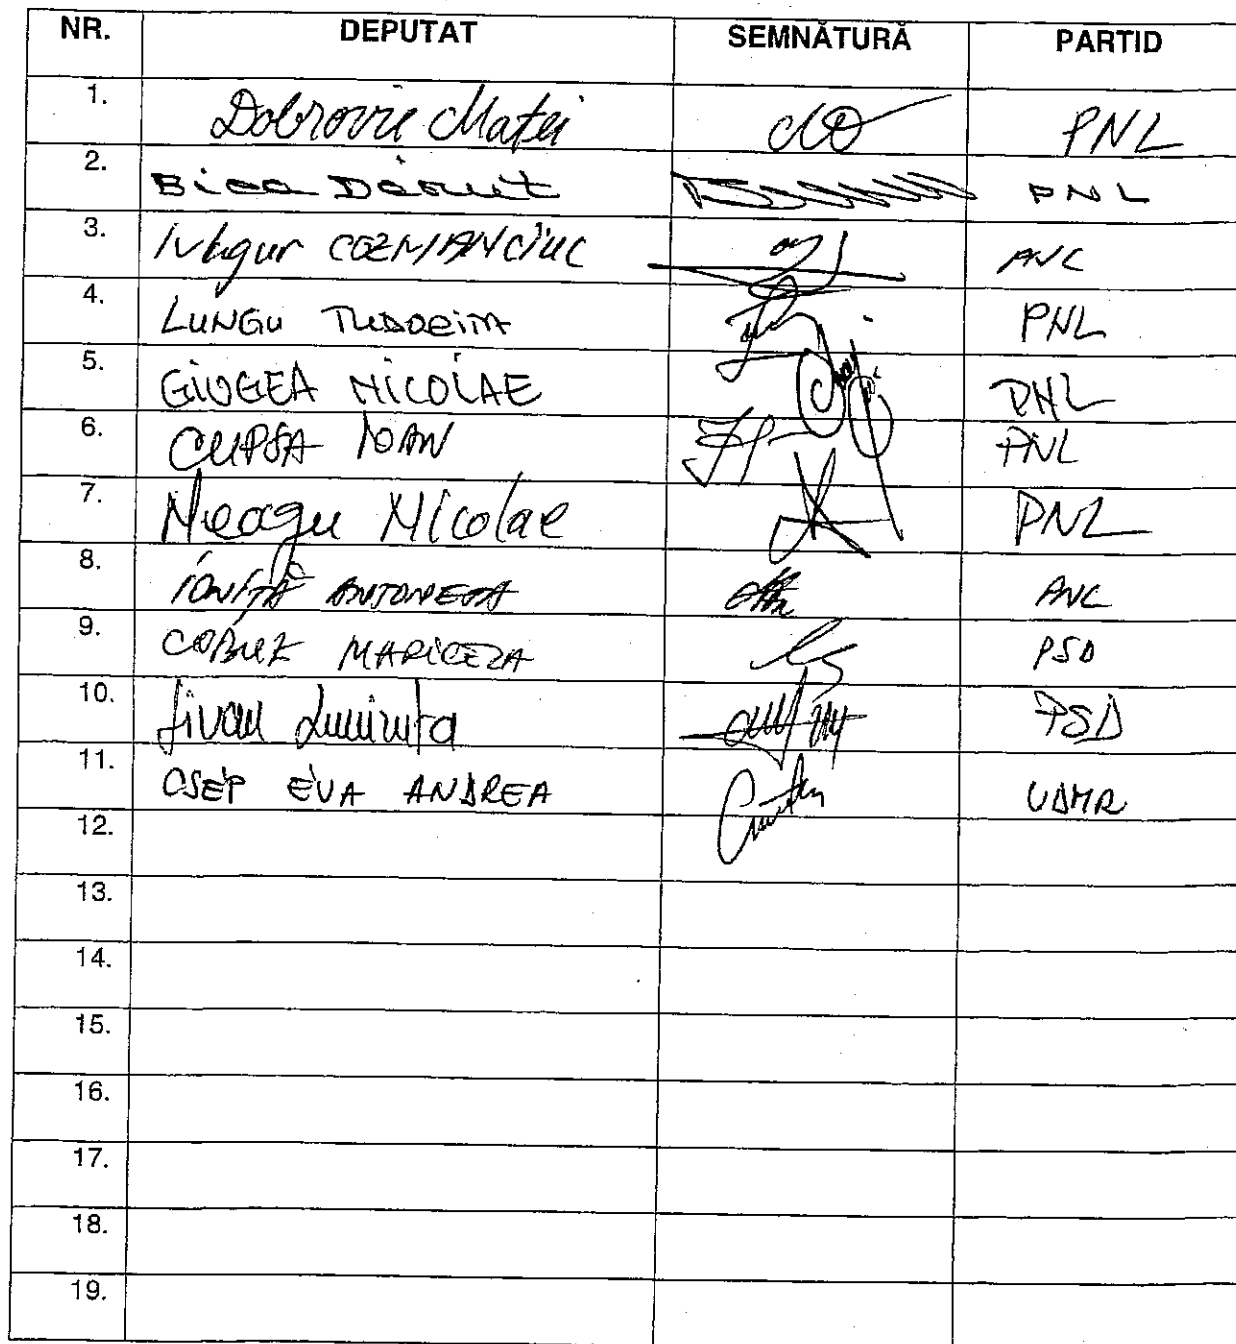 NR. DEPUTAT SEMNĂTURĂ PARTID
1. Dobrovie Matei PNL
2. Bica Dănuț PNL
3. COZMANCIUC PNL
4. LUNGU TUDORIȚA PNL
5. GIUGEA NICOLAE PNL
6. CUPȘA IOAN PNL
7. Neagu Nicolae PNL
8. IONIȚĂ ANTONETA PNL
9. COBUZ MARICELA PSD
10. Jivan Luminita PSD
11. CSÉP ÉVA ANDREA UDMR
12.
13.
14.
15.
16.
17.
18.
19.